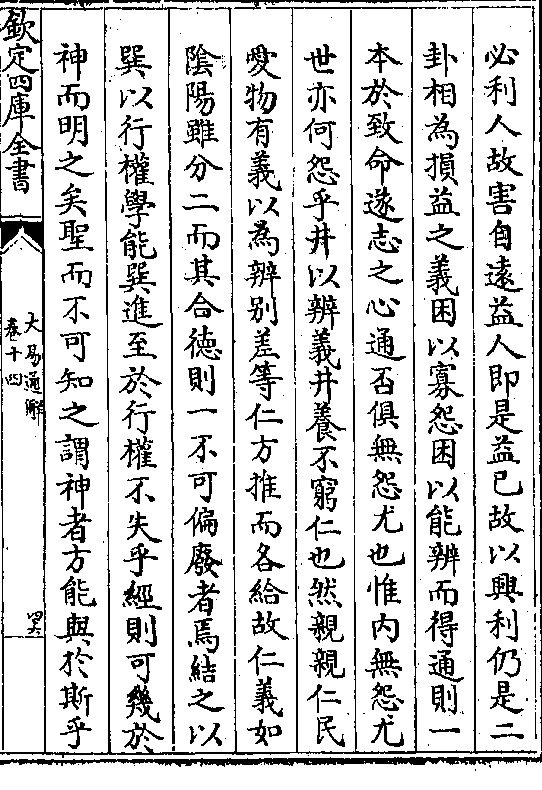 必利人故害自遠益人即是益已故以興利仍是二
卦相為損益之義困以寡怨困以能辨而得通則一
本於致命遂志之心通否俱無怨尤也惟内無怨尤
世亦何怨乎井以辨義井養不窮仁也然親親仁民
愛物有義以為辨别差等仁方推而各給故仁義如
陰陽雖分二而其合德則一不可偏廢者焉結之以
巽以行權學能巽進至於行權不失乎經則可幾於
神而明之矣聖而不可知之謂神者方能與於斯乎
欽定四庫全書
大易通解
卷十四
四六